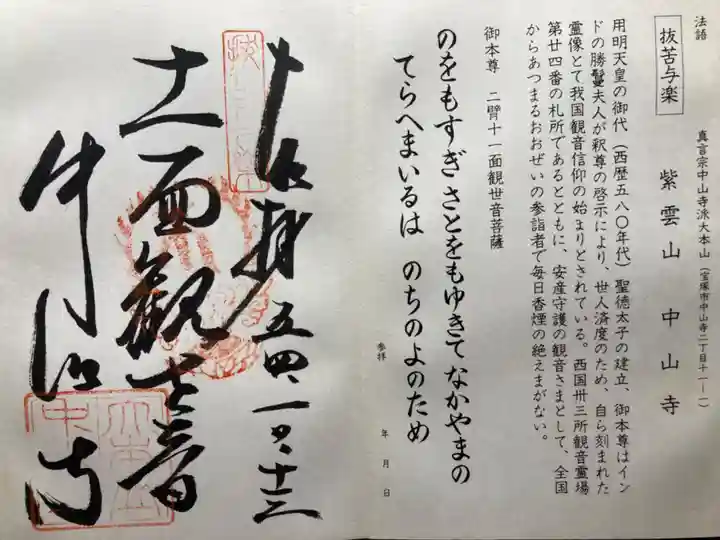 法語
抜苦与楽
真言宗中山寺派大本山(宝塚市中山寺二丁目十一ー一)
紫雲山 中山寺
用明天皇の御代(西歴五八〇年代)聖徳太子の建立、御本尊はイン
ドの勝鬘夫人が釈尊の啓示により、世人済度のため、自ら刻まれた
霊像とて我国観音信仰の始まりとされている。西国卅三所観音霊場
第廿四番の札所であるとともに、安産守護の観音さまとして、全国
からあつまるおおぜいの参詣者で毎日香煙の絶えまがない。
御本尊 二臂十一面観世音菩薩
のをもすぎ さとをもゆきて なかやまの
てらへまいるは のちのよのため
参拝 年 月 日
五四、一〇、十三
十一面観世音
中山寺